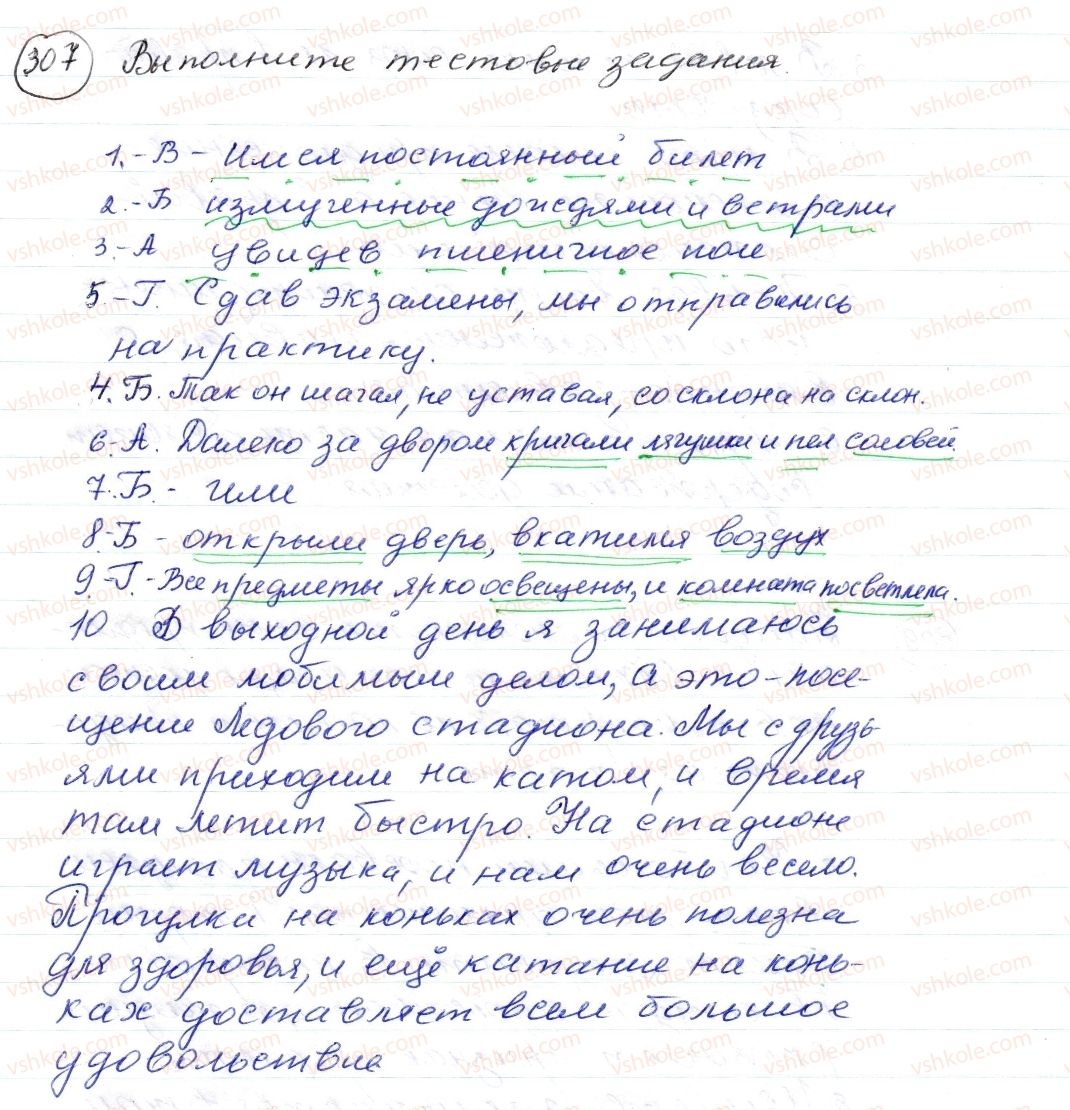 307 Выполните тестовые задания.
1.-В- Имея постоянный билет
2.-Б измученные дождями и ветрами
3.-А увидев пшеничное поле
5-Г. Сдав экзамены, мы отправились
на практику.
4. Б. Так он шагал, не уставая, со склона на склон.
6-А. Далеко за двором кричали лягушки и пел соловей.
7. Б. - или
8-Б - открыли дверь, вкатился воздух
9-Г- Все предметы ярко освещены, и комната посветлела.
10 В выходной день я занимаюсь
своим любимым делом, а это-посе-
щение Ледового стадиона. Мы с друзь-
ями приходим на каток, и время
там летит быстро. На стадионе
играет музыка, и нам очень весело.
Прогулка на коньках очень полезна
для здоровья, и ещё катание на конь-
ках доставляет всем большое
удовольствие